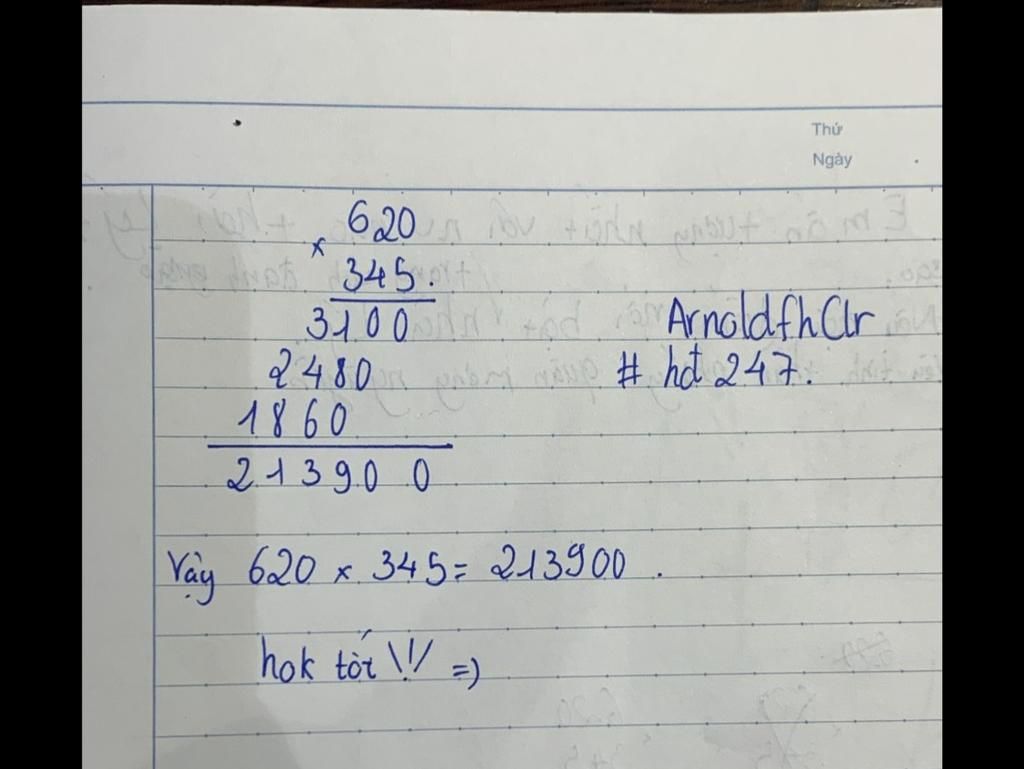 Thứ
Ngày
620
×
345.
3100
2480
1860
213900
ArnoldfhClr
# hđ 247.
Vậy 620 × 345 = 213900.
hok tốt \!/ =)